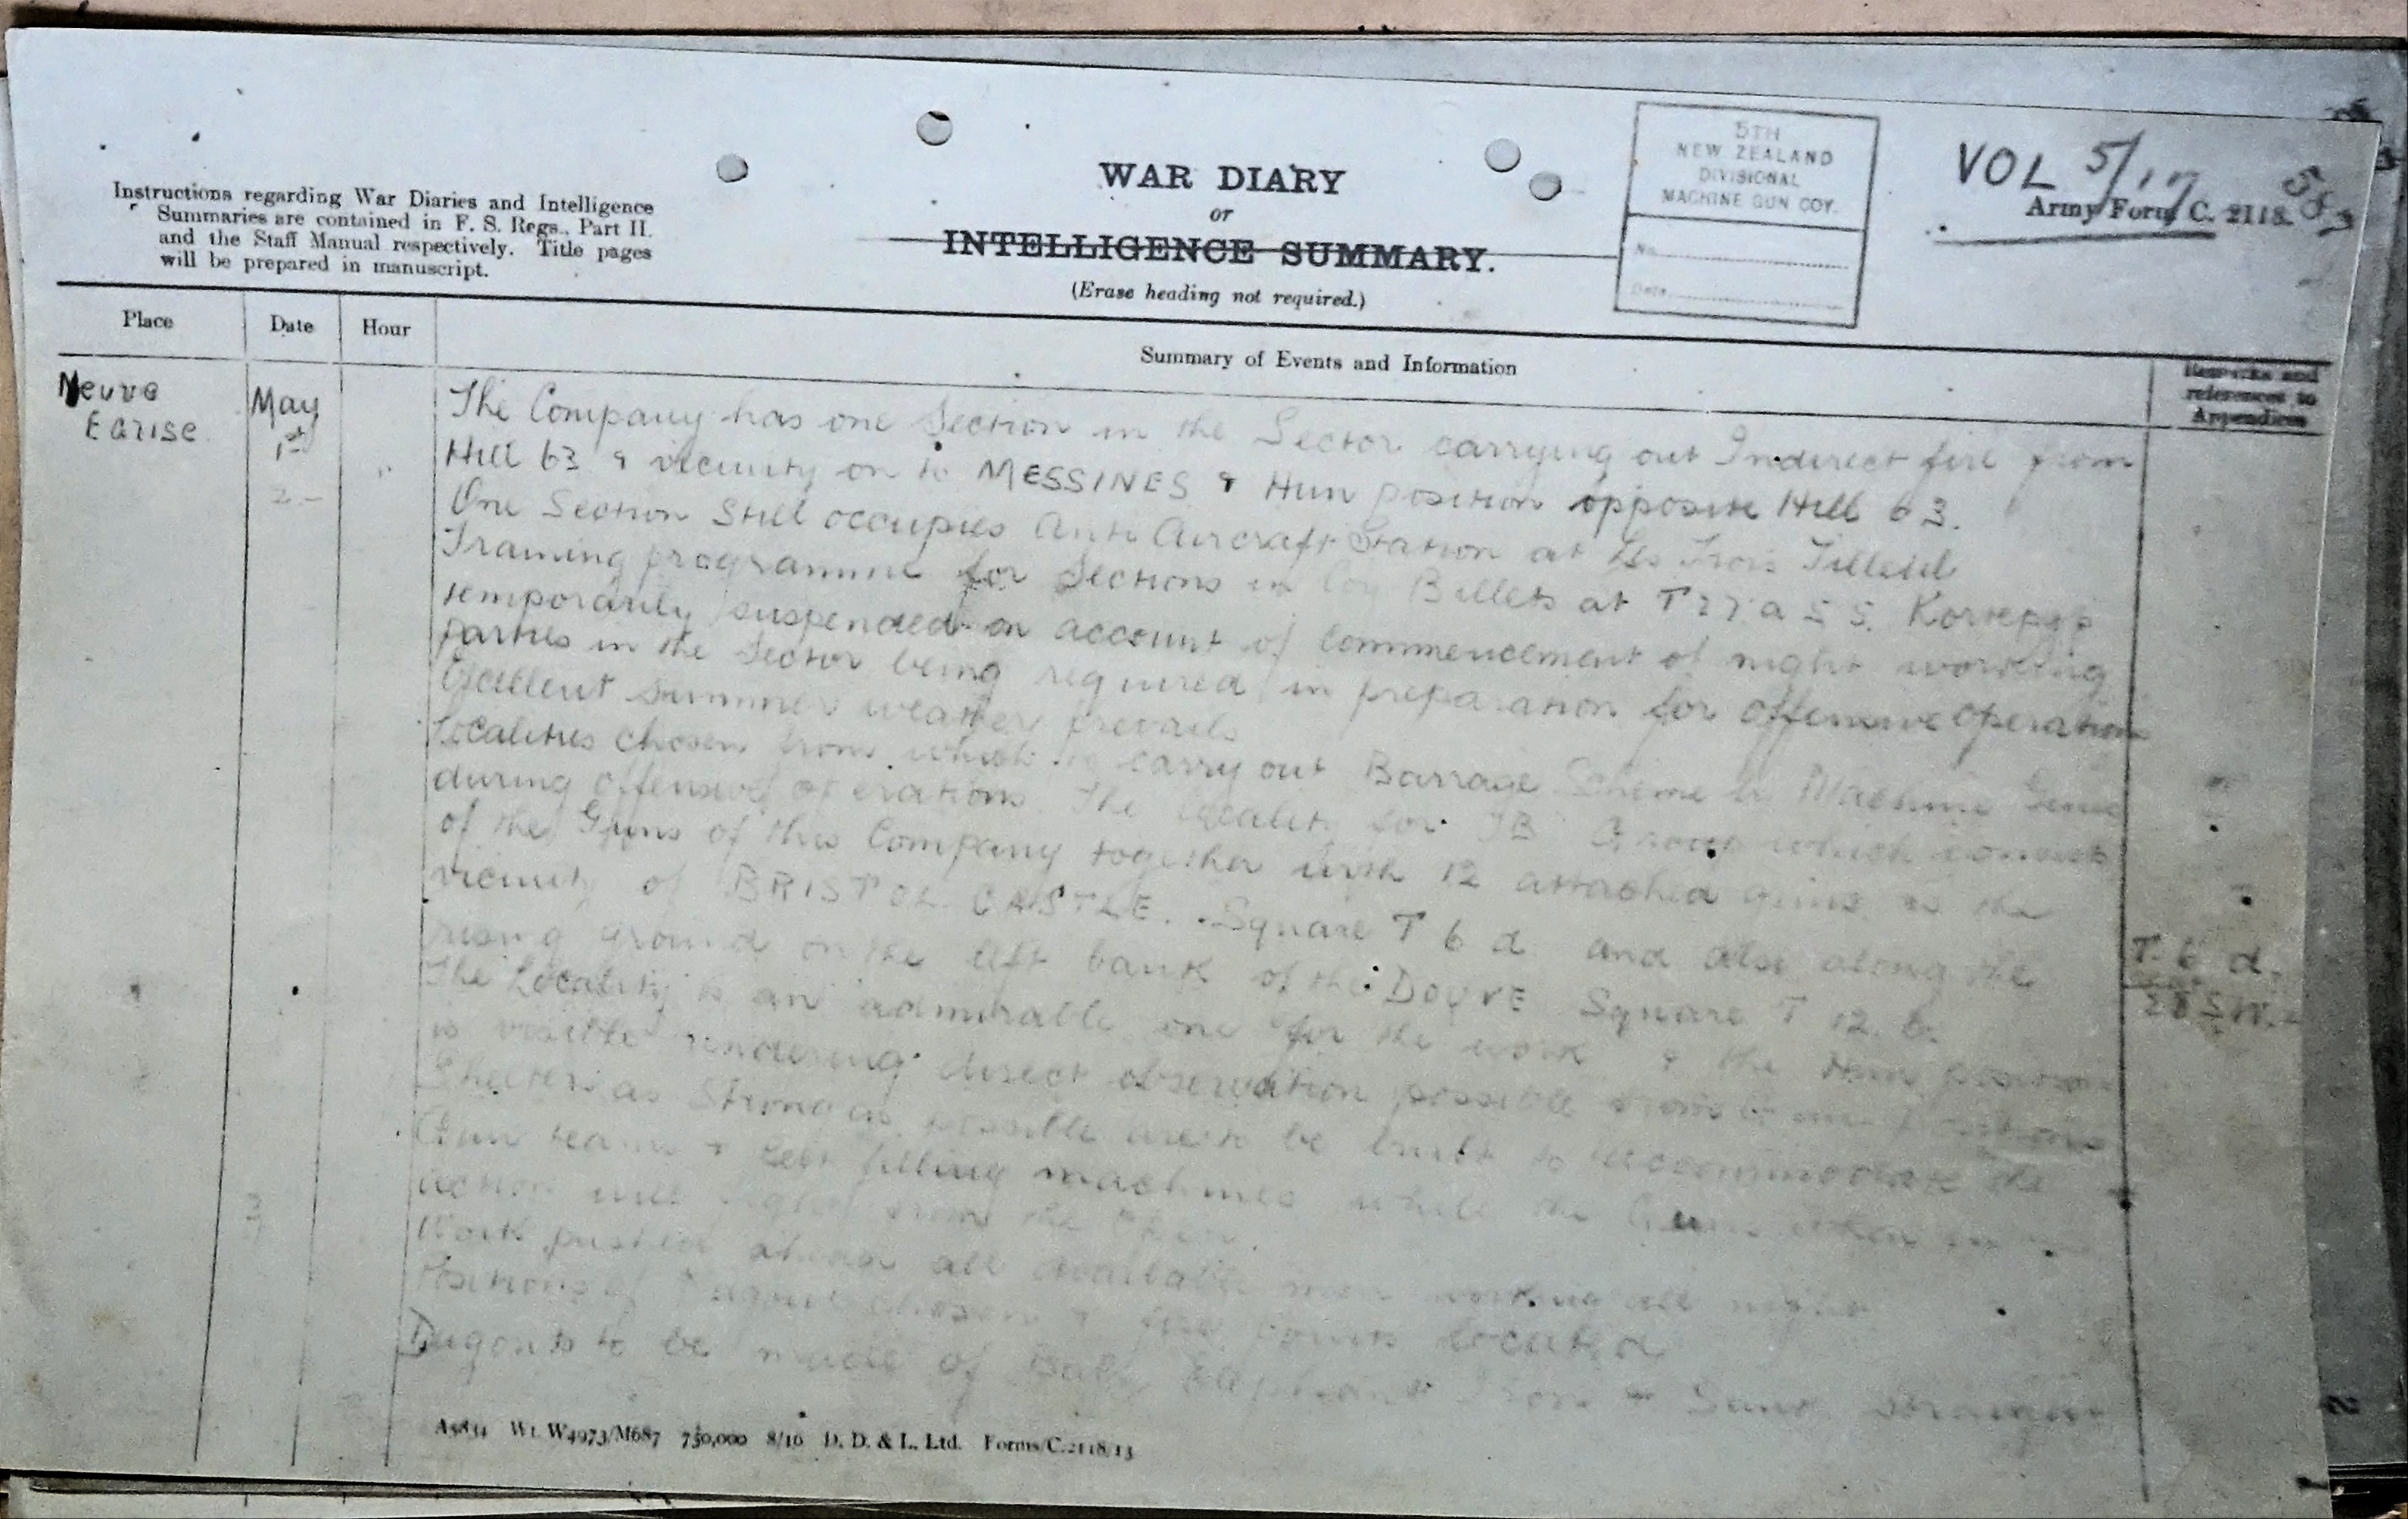 Instructions regarding War Diaries and Intelligence
Summaries are contained in F. S. Regs., Part II.
and the Staff Manual respectively. Title pages
will be prepared in manuscript.
WAR DIARY
or
INTELLIGENCE SUMMARY.
(Erase heading not required.)
5TH
NEW ZEALAND
DIVISIONAL
MACHINE GUN COY.
No.
Date
VOL 5/17
583
Army Form C. 2118.
Place
Date
Hour
Summary of Events and Information
Remarks and
references to
Appendices
Neuve
Eglise
May
1st
2
3
The Company has one Section in the Sector carrying out Indirect fire from
Hill 63 & vicinity on to MESSINES & Hun position opposite Hill 63.
One Section still occupies Anti Aircraft Station at Les Trois Tilleul
Training programme for Sections in Coy Billets at T27.a 5 5. Kortepyp
temporarily suspended on account of commencement of night working
parties in the Sector being required in preparation for offensive operations
Excellent Summer weather prevails
Localities chosen from which to carry out Barrage Scheme by Machine Guns
during offensive operations. The locality for Group which consists
of the Guns of this Company together with 12 attached guns is the
vicinity of BRISTOL CASTLE. Square T 6 d and also along the
rising ground on the left bank of the DOUVE Square T 12. b.
The Locality is an admirable one for the work & the Hun position
is visible rendering direct observation possible from
Shelters as strong as possible are to be built to accommodate the
Gun teams & belt filling machines while the Guns when in
action will fight from the open.
Work pushed ahead all available men working all night
Positions of Dugouts chosen & located
Dugouts to be made of Baby Elephant Iron
T. 6 d.
28 S.W.
A5834 Wt. W4973/M687 750,000 8/16 D. D. & L. Ltd. Forms/C.2118/13